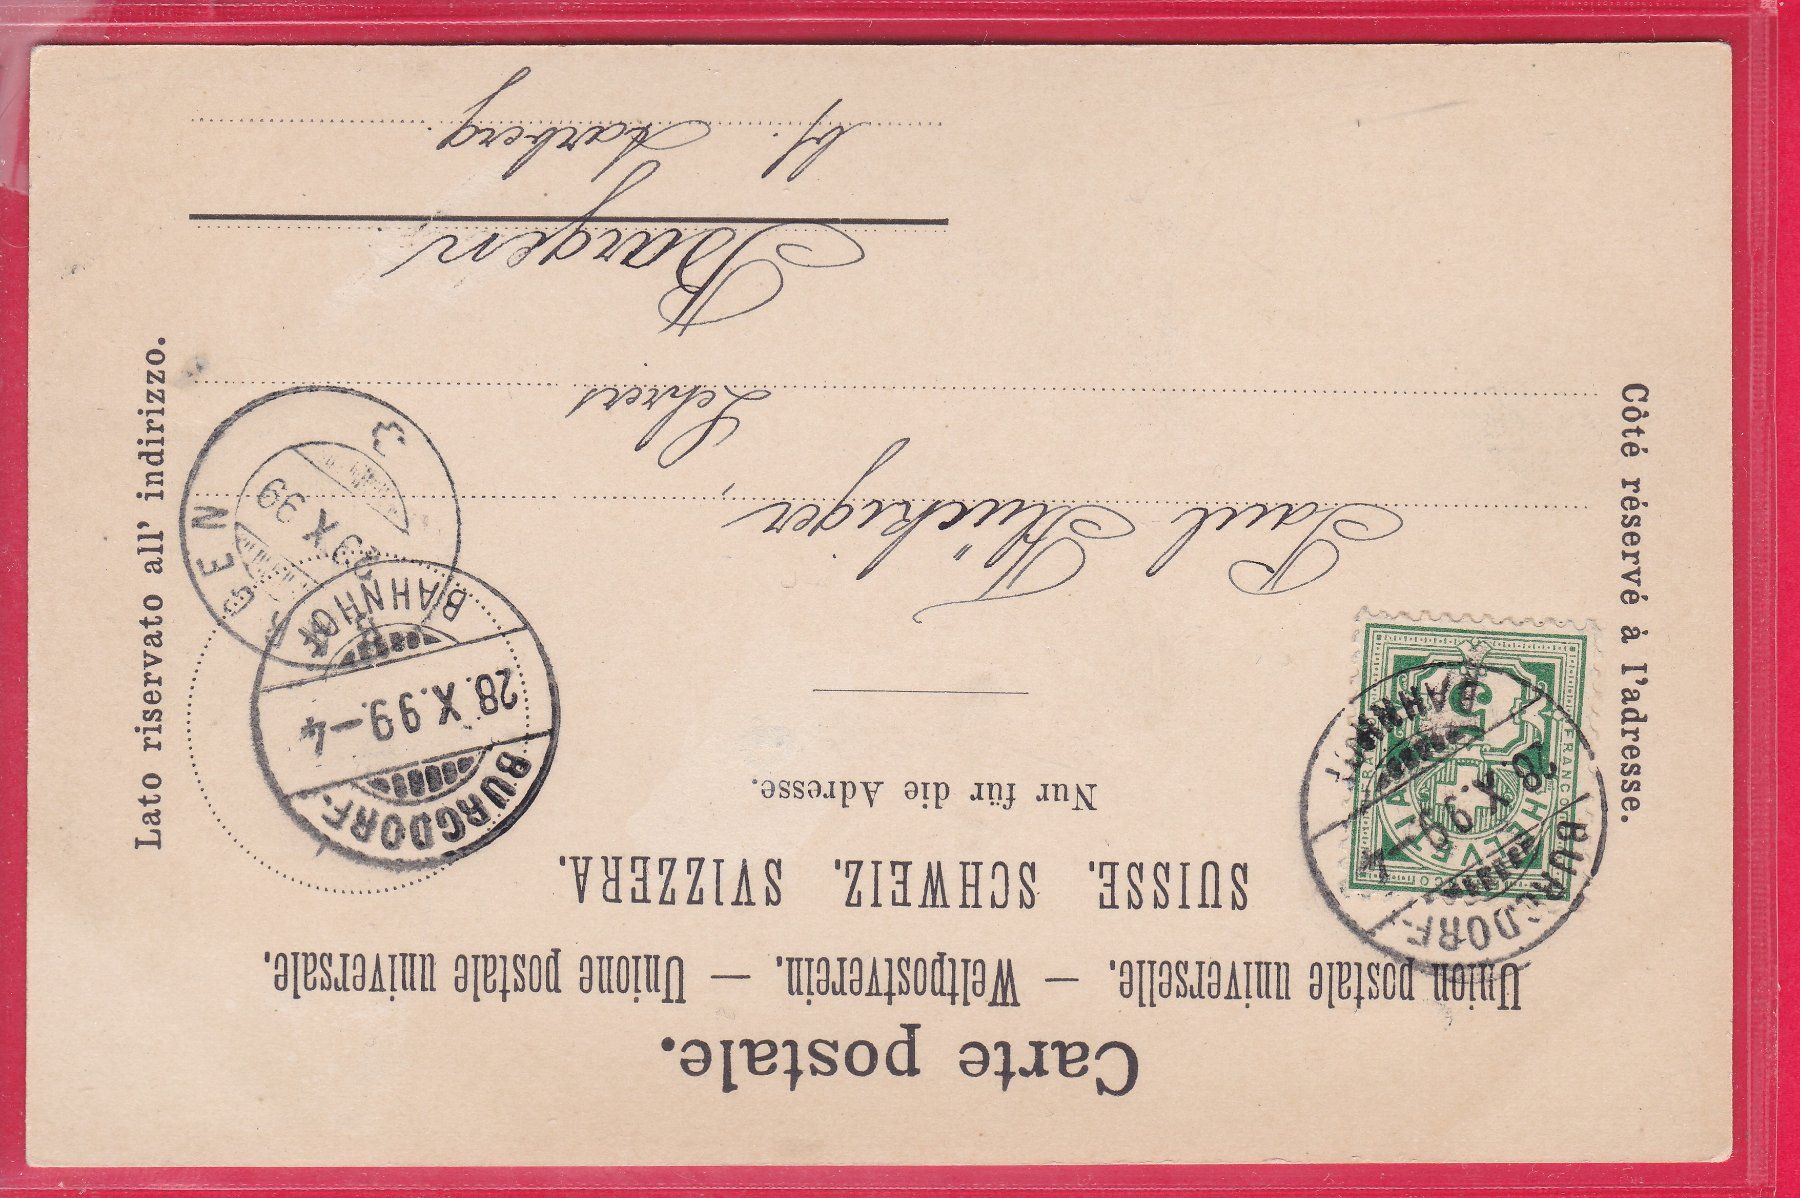 Carte postale.
Union postale universelle. — Weltpostverein. — Unione postale universale.
SUISSE. SCHWEIZ. SVIZZERA.
Nur für die Adresse.
Côté réservé à l'adresse.
Lato riservato all' indirizzo.
FRANCO
HELVETIA
5
BURGDORF-
28.X.99.-4
BAHNHOF
BURGDORF-
28.X.99.-4
BAHNHOF
X 99
3
Paul Flückiger,
Lehrers
Bargen
b/. Aarberg.